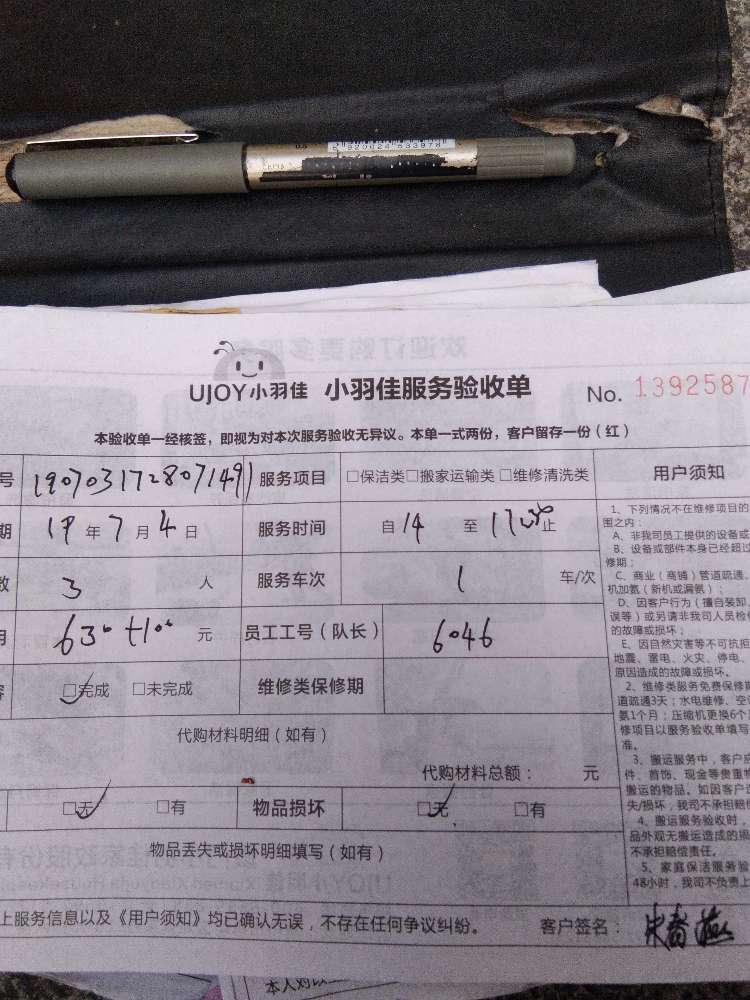 0.5
6 920624 533878
UJOY小羽佳 小羽佳服务验收单 No. 1392587
本验收单一经核签，即视为对本次服务验收无异议。本单一式两份，客户留存一份（红）
号 19070317280714911 服务项目 □保洁类□搬家运输类□维修清洗类 用户须知
期 19年7月4日 服务时间 自14至17止
数 3 人 服务车次 1 车/次
用 630+100 元 员工工号（队长） 6046
容 □完成 □未完成 维修类保修期
代购材料明细（如有）
代购材料总额： 元
□无 □有 物品损坏 □无 □有
物品丢失或损坏明细填写（如有）
上服务信息以及《用户须知》均已确认无误，不存在任何争议纠纷。 客户签名：
1、下列情况不在维修项目的
围之内：
A、非我司员工提供的设备或
B、设备或部件本身已经超过
修期；
C、商业（商铺）管道疏通、
机加氨（新机或漏氨）；
D、因客户行为（擅自装卸、
误等）或另请非我司人员检修
的故障或损坏；
E、因自然灾害等不可抗拒
地震、雷电、火灾、停电、
原因造成的故障或损坏。
2、维修类服务免费保修期
道疏通3天；水电维修、空
氨1个月；压缩机更换6个
修项目以服务验收单填写
准。
3、搬运服务中，客户应
件、首饰、现金等贵重物
搬运的物品。如因客户
失/损坏，我司不承担赔
4、搬运服务验收时，
品外观无搬运造成的损
不承担赔偿责任。
5、家庭保洁服务验
48小时，我司不负责上
本人对以上